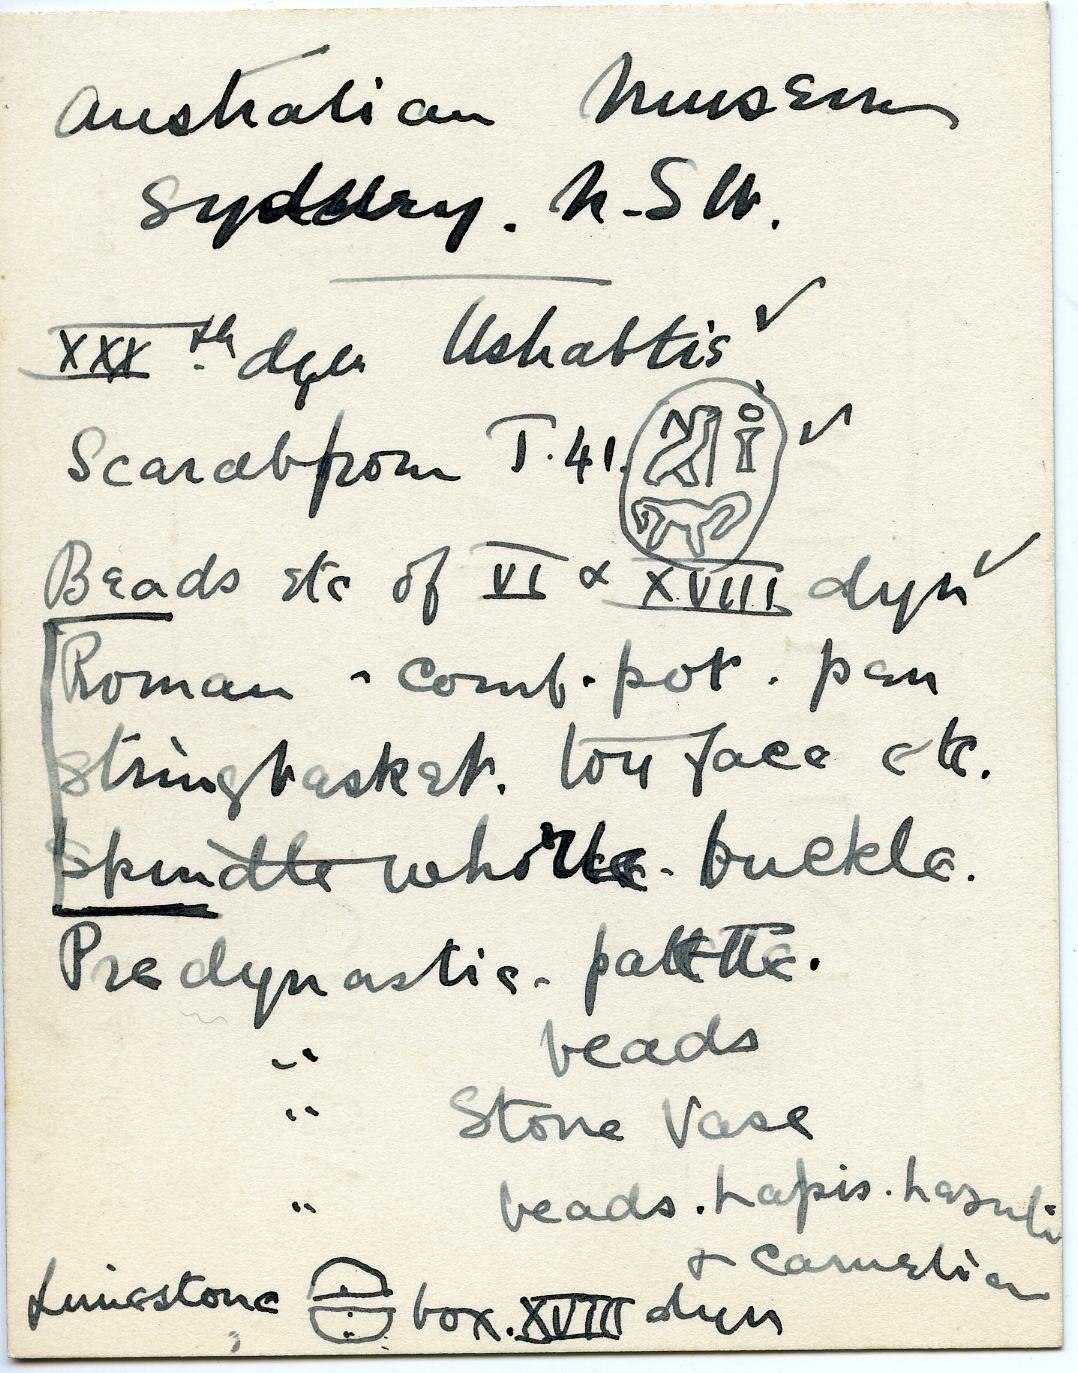 Australian Museum
Sydney. N.S.W.
XXXth dyn Ushabtis ✓
Scarab from T.41. ✓
Beads etc of VI & XVIII dyn ✓
Roman - comb. pot. pen
String basket. toy face etc.
Spindle whorle. buckle.
Predynastic. palette.
" beads
" Stone Vase
" beads. Lapis. Lazuli
& Carnelian
Limestone box. XVIII dyn